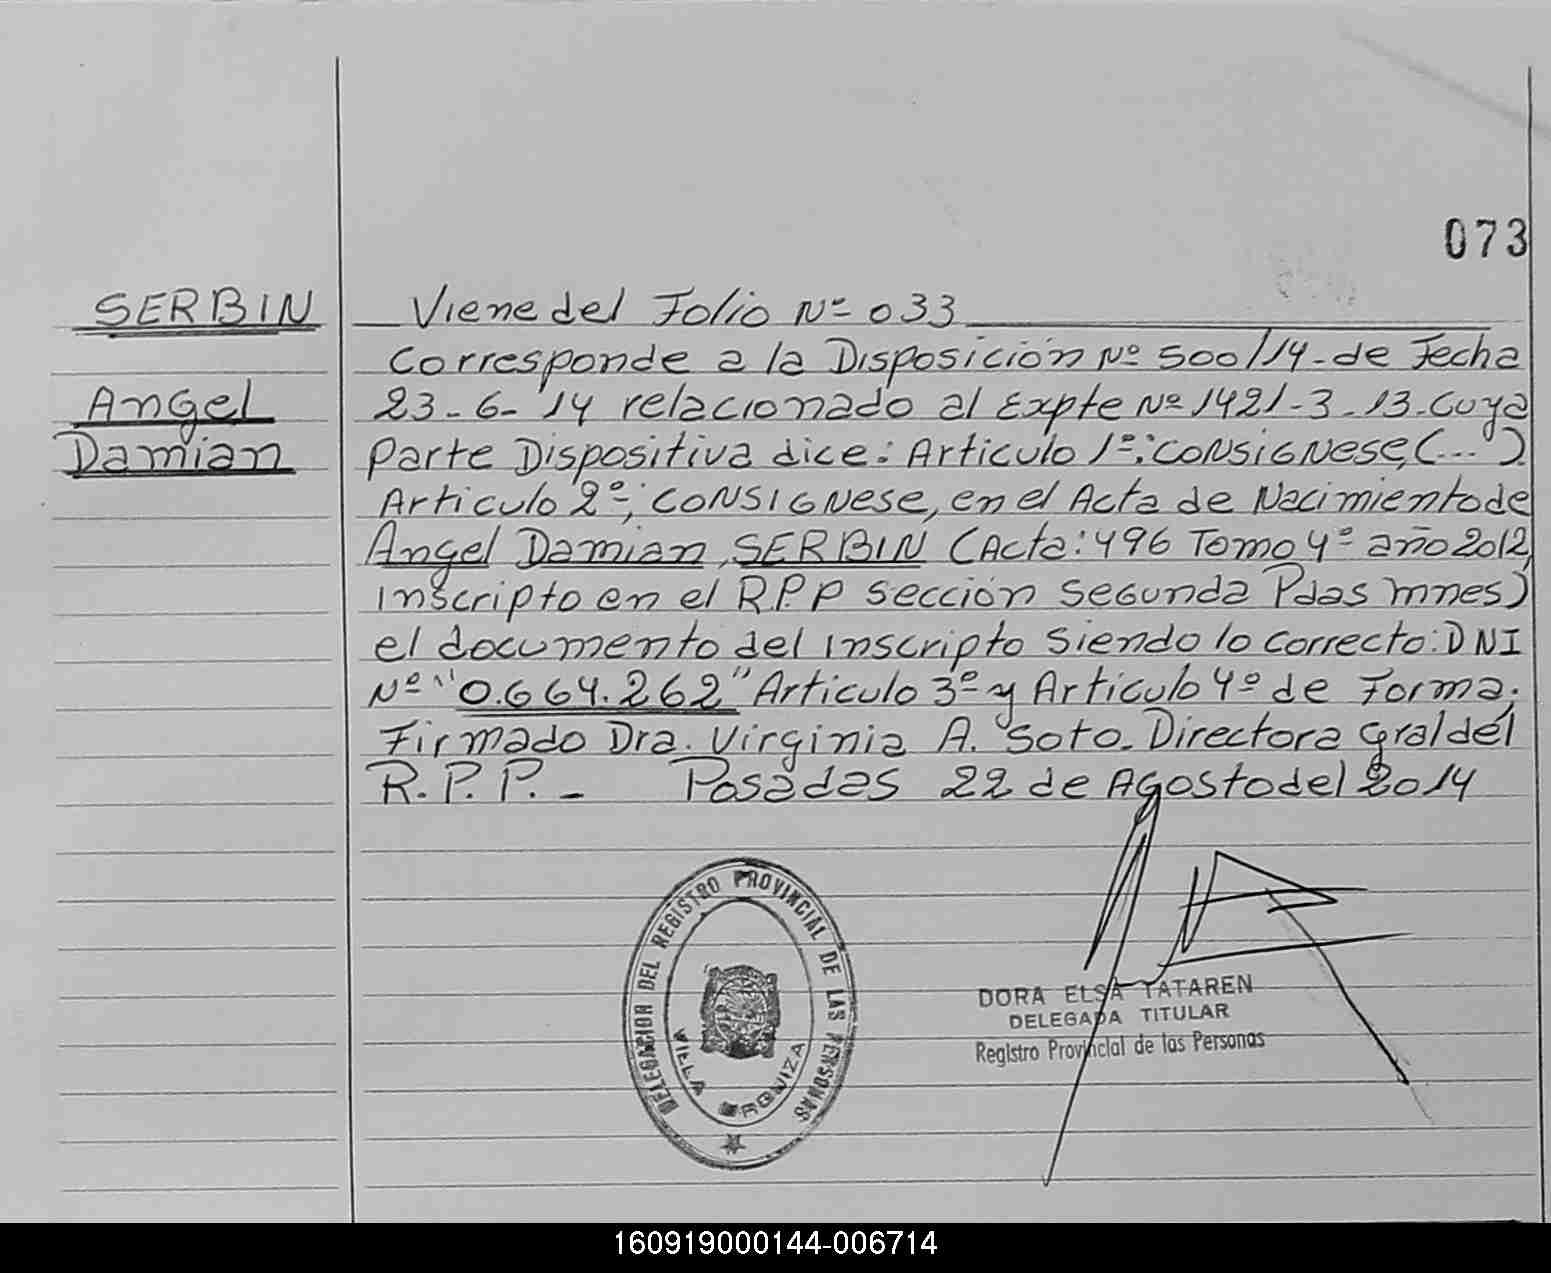 073
SERBIN
Viene del Folio Nº 033
Corresponde a la Disposición Nº 500/14-de Fecha
Angel
23-6-14 relacionado al Expte Nº 1421-3-13-Cuya
Damian
Parte Dispositiva dice: Articulo 1º: CONSIGNESE, (...).
Articulo 2º; CONSIGNESE, en el Acta de Nacimiento de
Angel Damian, SERBIN (Acta: 496 Tomo 4º año 2012,
inscripto en el R.P.P seccion segunda Pdas mnes)
el documento del inscripto siendo lo correcto: DNI
Nº "0.664.262" Articulo 3º y Articulo 4º de Forma.
Firmado Dra. Virginia A. Soto. Directora Gral del
R.P.P.- Posadas 22 de Agosto del 2014
DELEGACION DEL REGISTRO PROVINCIAL DE LAS PERSONAS
VILLA URQUIZA
DORA ELSA TATAREN
DELEGADA TITULAR
Registro Provincial de las Personas
160919000144-006714